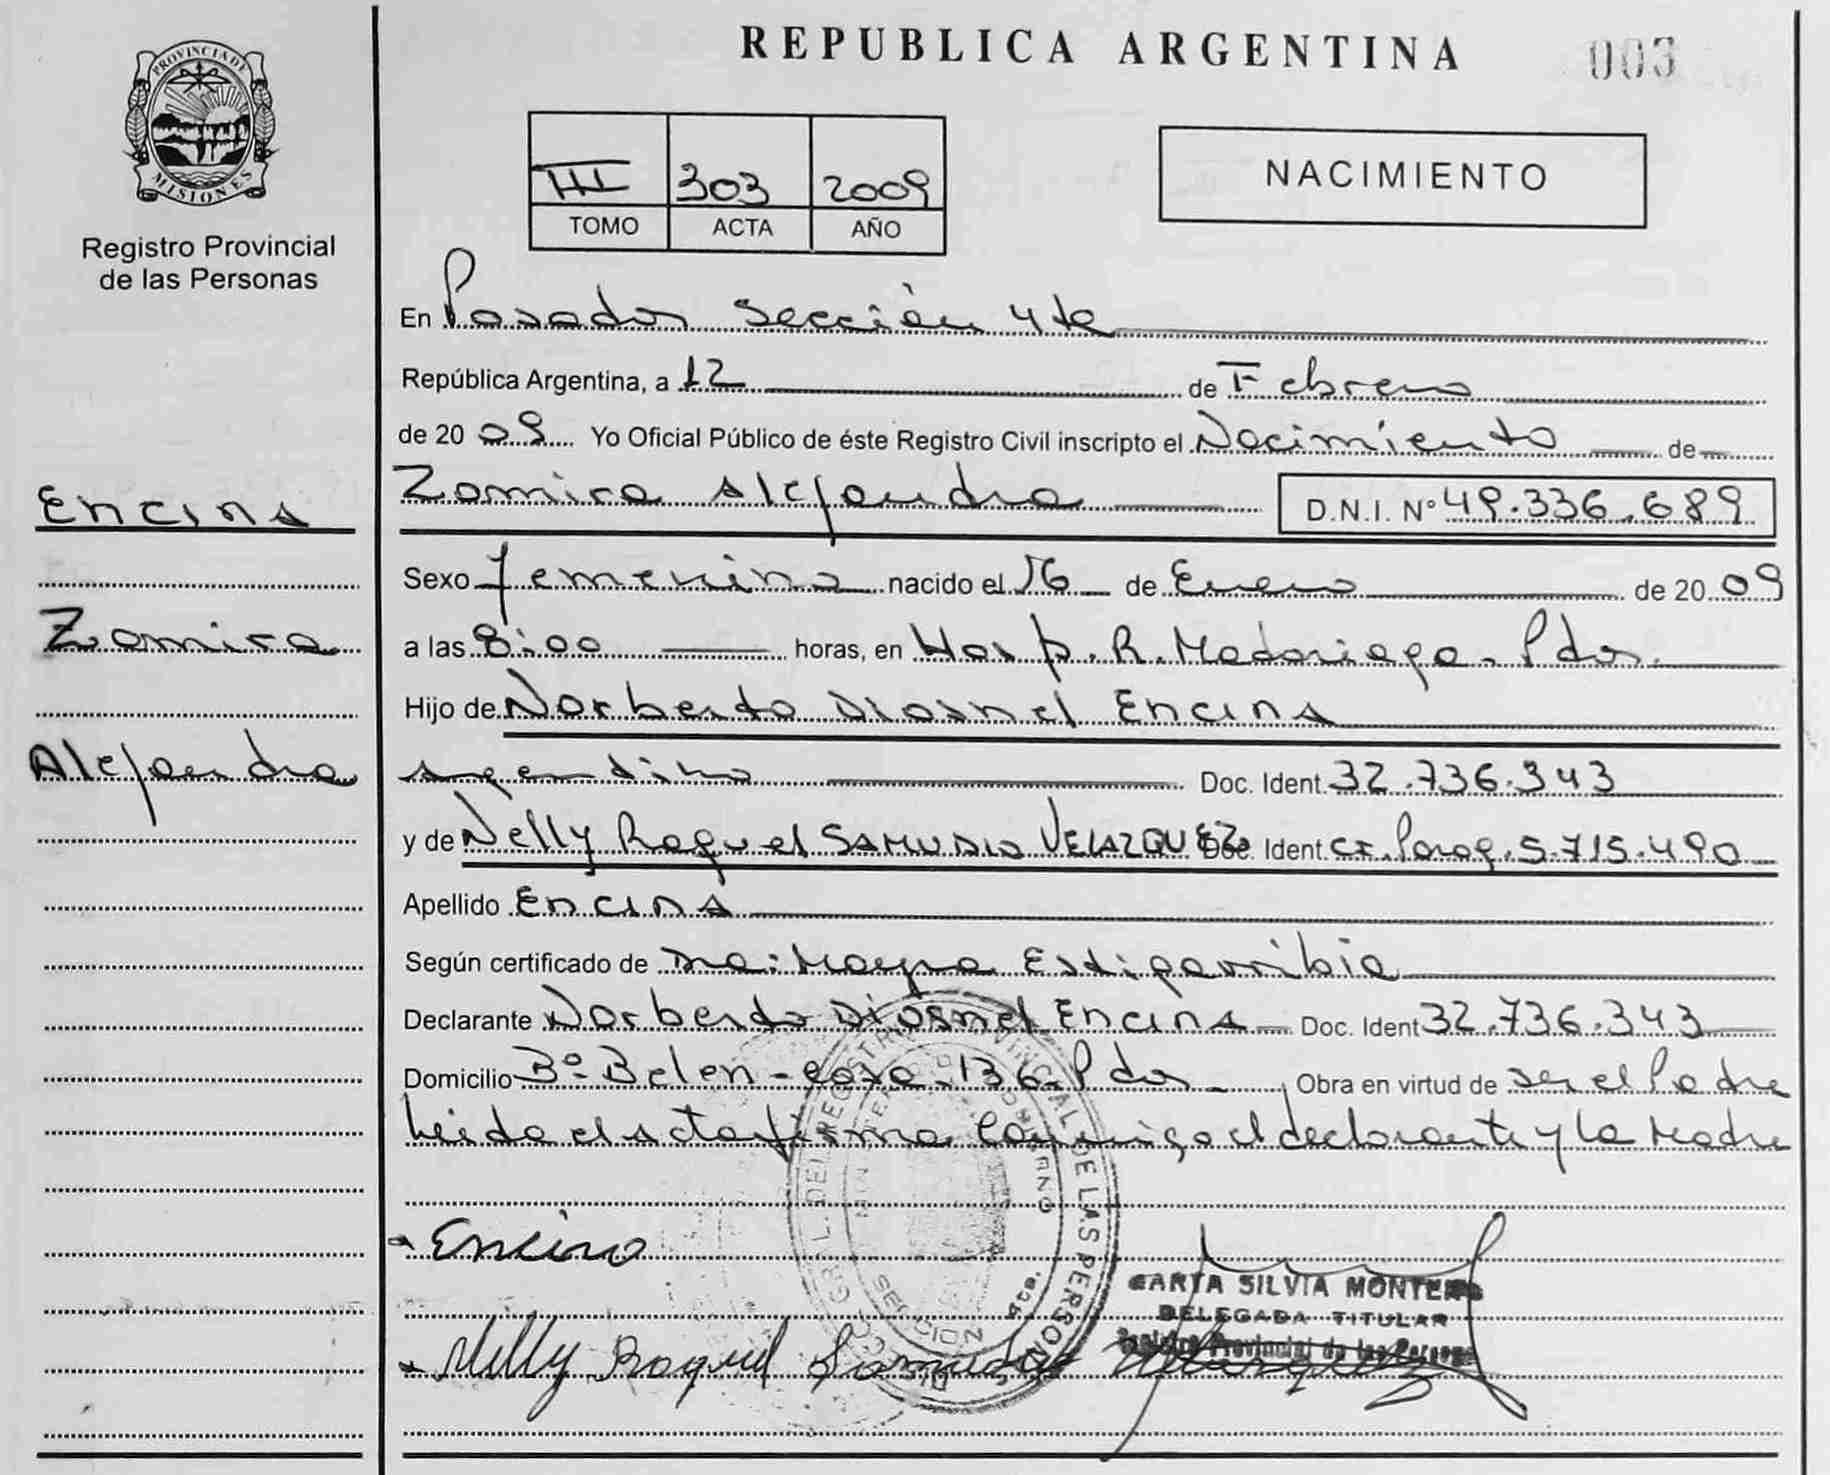 REPUBLICA ARGENTINA
003
PROVINCIA DE MISIONES
Registro Provincial
de las Personas
III 303 2009
TOMO ACTA AÑO
NACIMIENTO
En Posadas Sección 4ta
República Argentina, a 12 de Febrero
de 20 09 Yo Oficial Público de éste Registro Civil inscripto el Nacimiento de
Zamira Alejandra D.N.I. Nº 49.336.689
Encina
Zamira
Alejandra
Sexo femenino nacido el 16 de Enero de 20 09
a las 8:00 horas, en Hosp. R. Madariaga. Pdas.
Hijo de Norberto Diosnel Encina
argentino Doc. Ident. 32.736.343
y de Nelly Raquel SAMUDIO VELAZQUEZ Doc. Ident. C.I. Parag. 5.715.490
Apellido Encina
Según certificado de Dra: Mayra Estigarribia
Declarante Norberto Diosnel Encina Doc. Ident 32.736.343
Domicilio Bº Belen - casa 136 - Pdas - Obra en virtud de ser el Padre
Leida el acta firma conmigo el declarante y la Madre
Encina
SECCION 4ta.
MONTE
SILVIA
DELEGADA TITULAR
Registro Provincial de las Personas
Nelly Raquel Samudio Velazquez